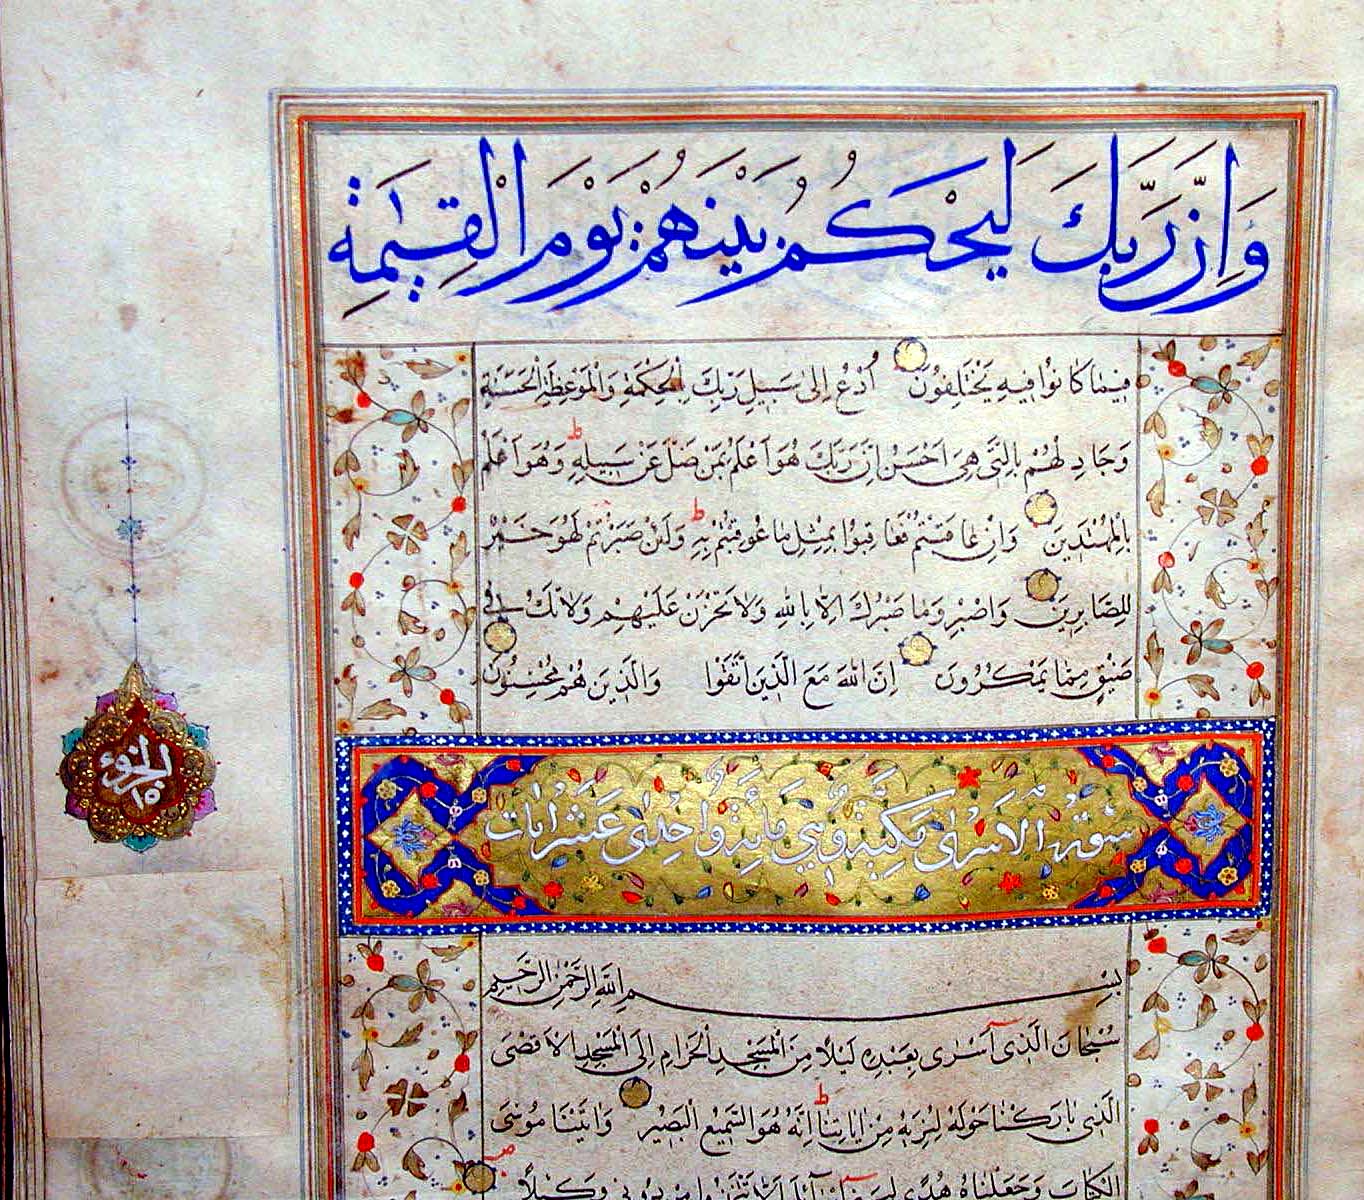 وَاِنَّ رَبَّكَ لَيَحْكُمُ بَيْنَهُمْ يَوْمَ الْقِيٰمَةِ
فِيمَا كَانُوا فِيهِ يَخْتَلِفُونَ اُدْعُ اِلٰى سَبِيلِ رَبِّكَ بِالْحِكْمَةِ وَالْمَوْعِظَةِ الْحَسَنَةِ
وَجَادِلْهُمْ بِالَّتِي هِيَ اَحْسَنُ اِنَّ رَبَّكَ هُوَ اَعْلَمُ بِمَنْ ضَلَّ عَنْ سَبِيلِهِ ط وَهُوَ اَعْلَمُ
بِالْمُهْتَدِينَ وَاِنْ عَاقَبْتُمْ فَعَاقِبُوا بِمِثْلِ مَا عُوقِبْتُمْ بِهِ ط وَلَئِنْ صَبَرْتُمْ لَهُوَ خَيْرٌ
لِلصَّابِرِينَ وَاصْبِرْ وَمَا صَبْرُكَ اِلَّا بِاللّٰهِ وَلَا تَحْزَنْ عَلَيْهِمْ وَلَا تَكُ فِي
ضَيْقٍ مِمَّا يَمْكُرُونَ اِنَّ اللّٰهَ مَعَ الَّذِينَ اتَّقَوْا وَالَّذِينَ هُمْ مُحْسِنُونَ
الجزؤ ١٥
سورة الاسرى مكية وهي مائة واحدى عشر ايات
بِسْمِ اللّٰهِ الرَّحْمٰنِ الرَّحِيمِ
سُبْحَانَ الَّذِي اَسْرٰى بِعَبْدِهِ لَيْلًا مِنَ الْمَسْجِدِ الْحَرَامِ اِلَى الْمَسْجِدِ الْاَقْصَى
الَّذِي بَارَكْنَا حَوْلَهُ لِنُرِيَهُ مِنْ اٰيَاتِنَا ط اِنَّهُ هُوَ السَّمِيعُ الْبَصِيرُ وَاٰتَيْنَا مُوسَى
الْكِتَابَ وَجَعَلْنَاهُ هُدًى لِبَنِي اِسْرَائِيلَ اَلَّا تَتَّخِذُوا مِنْ دُونِي وَكِيلًا